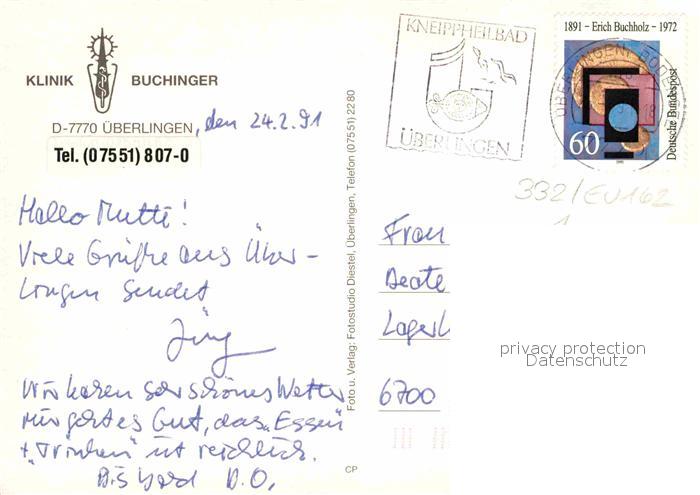 KLINIK BUCHINGER
D-7770 ÜBERLINGEN, den 24.2.91
Tel. (07551) 807-0
Hallo Mutti!
Viele Grüße aus Über-
lingen sendet
Jürg
Wir haben sehr schönes Wetter
mir geht es gut, das „Essen"
+ „Trinken" ist reichlich.
Bis bald D.O.
Foto u. Verlag: Fotostudio Diestel, Überlingen, Telefon (07551) 2280
CP
KNEIPPHEILBAD
ÜBERLINGEN
1891 – Erich Buchholz – 1972
Deutsche Bundespost
60
ÜBERLINGEN, BODEN
18
332/EU162
1
Frau
Beate
Lagerh
6700
privacy protection
Datenschutz